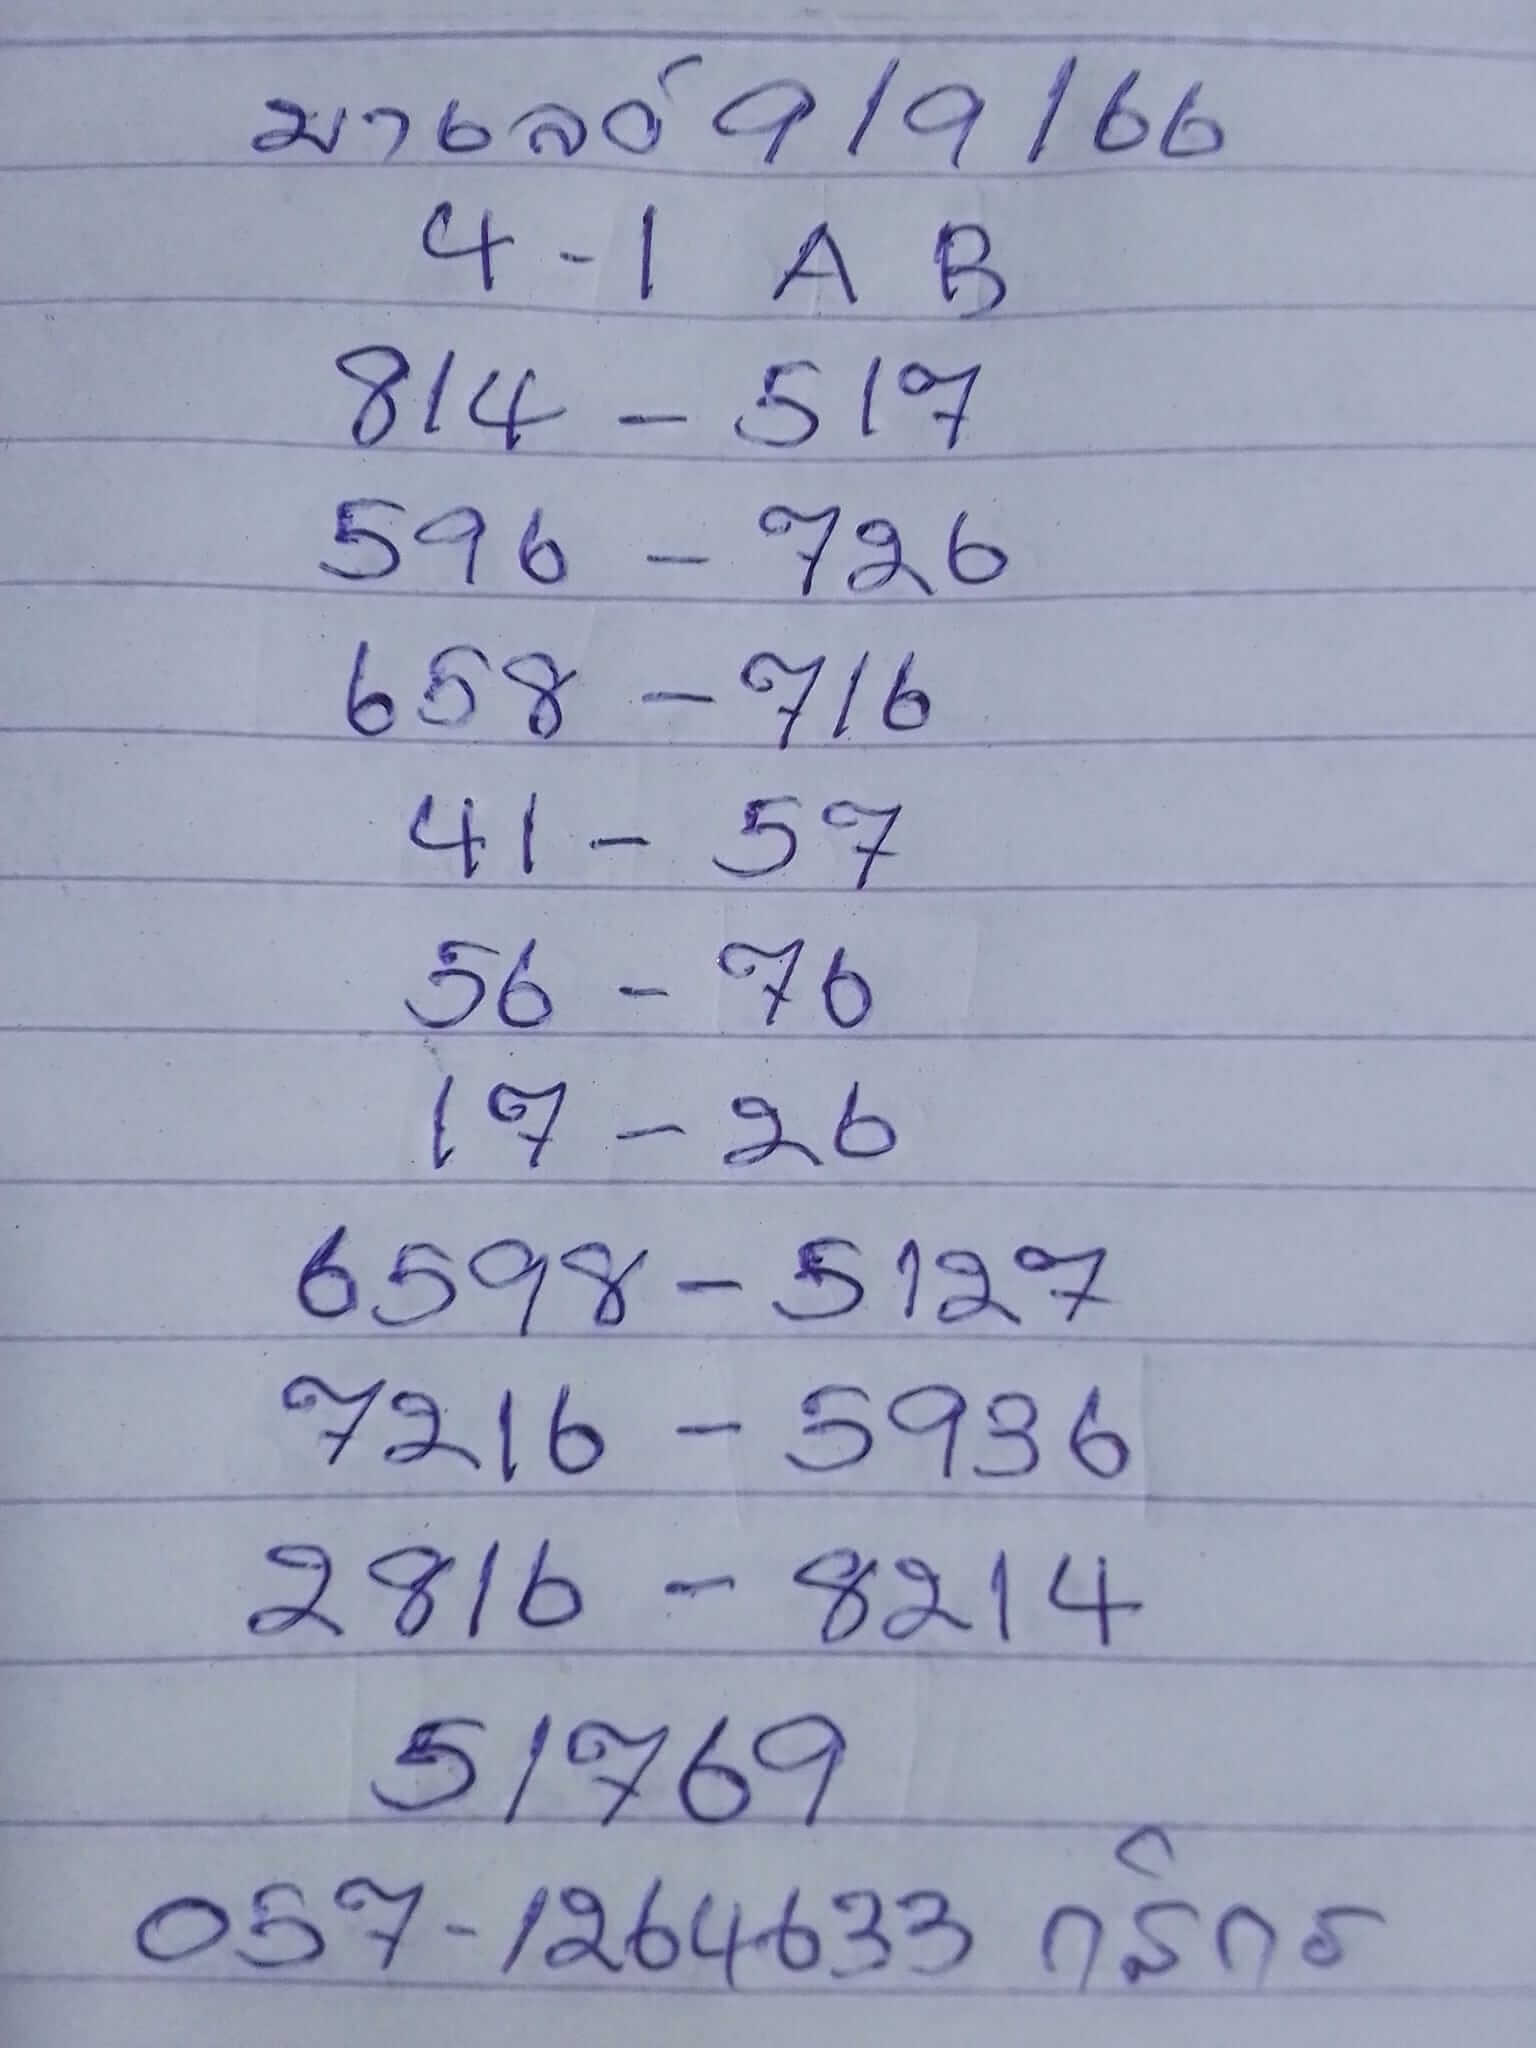 มาเลย์ 9/9/66
4-1 A B
814 - 517
596 - 726
658 - 716
41 - 57
56 - 76
17 - 26
6598 - 5127
7216 - 5936
2816 - 8214
51769
057-1264633 กสิกร